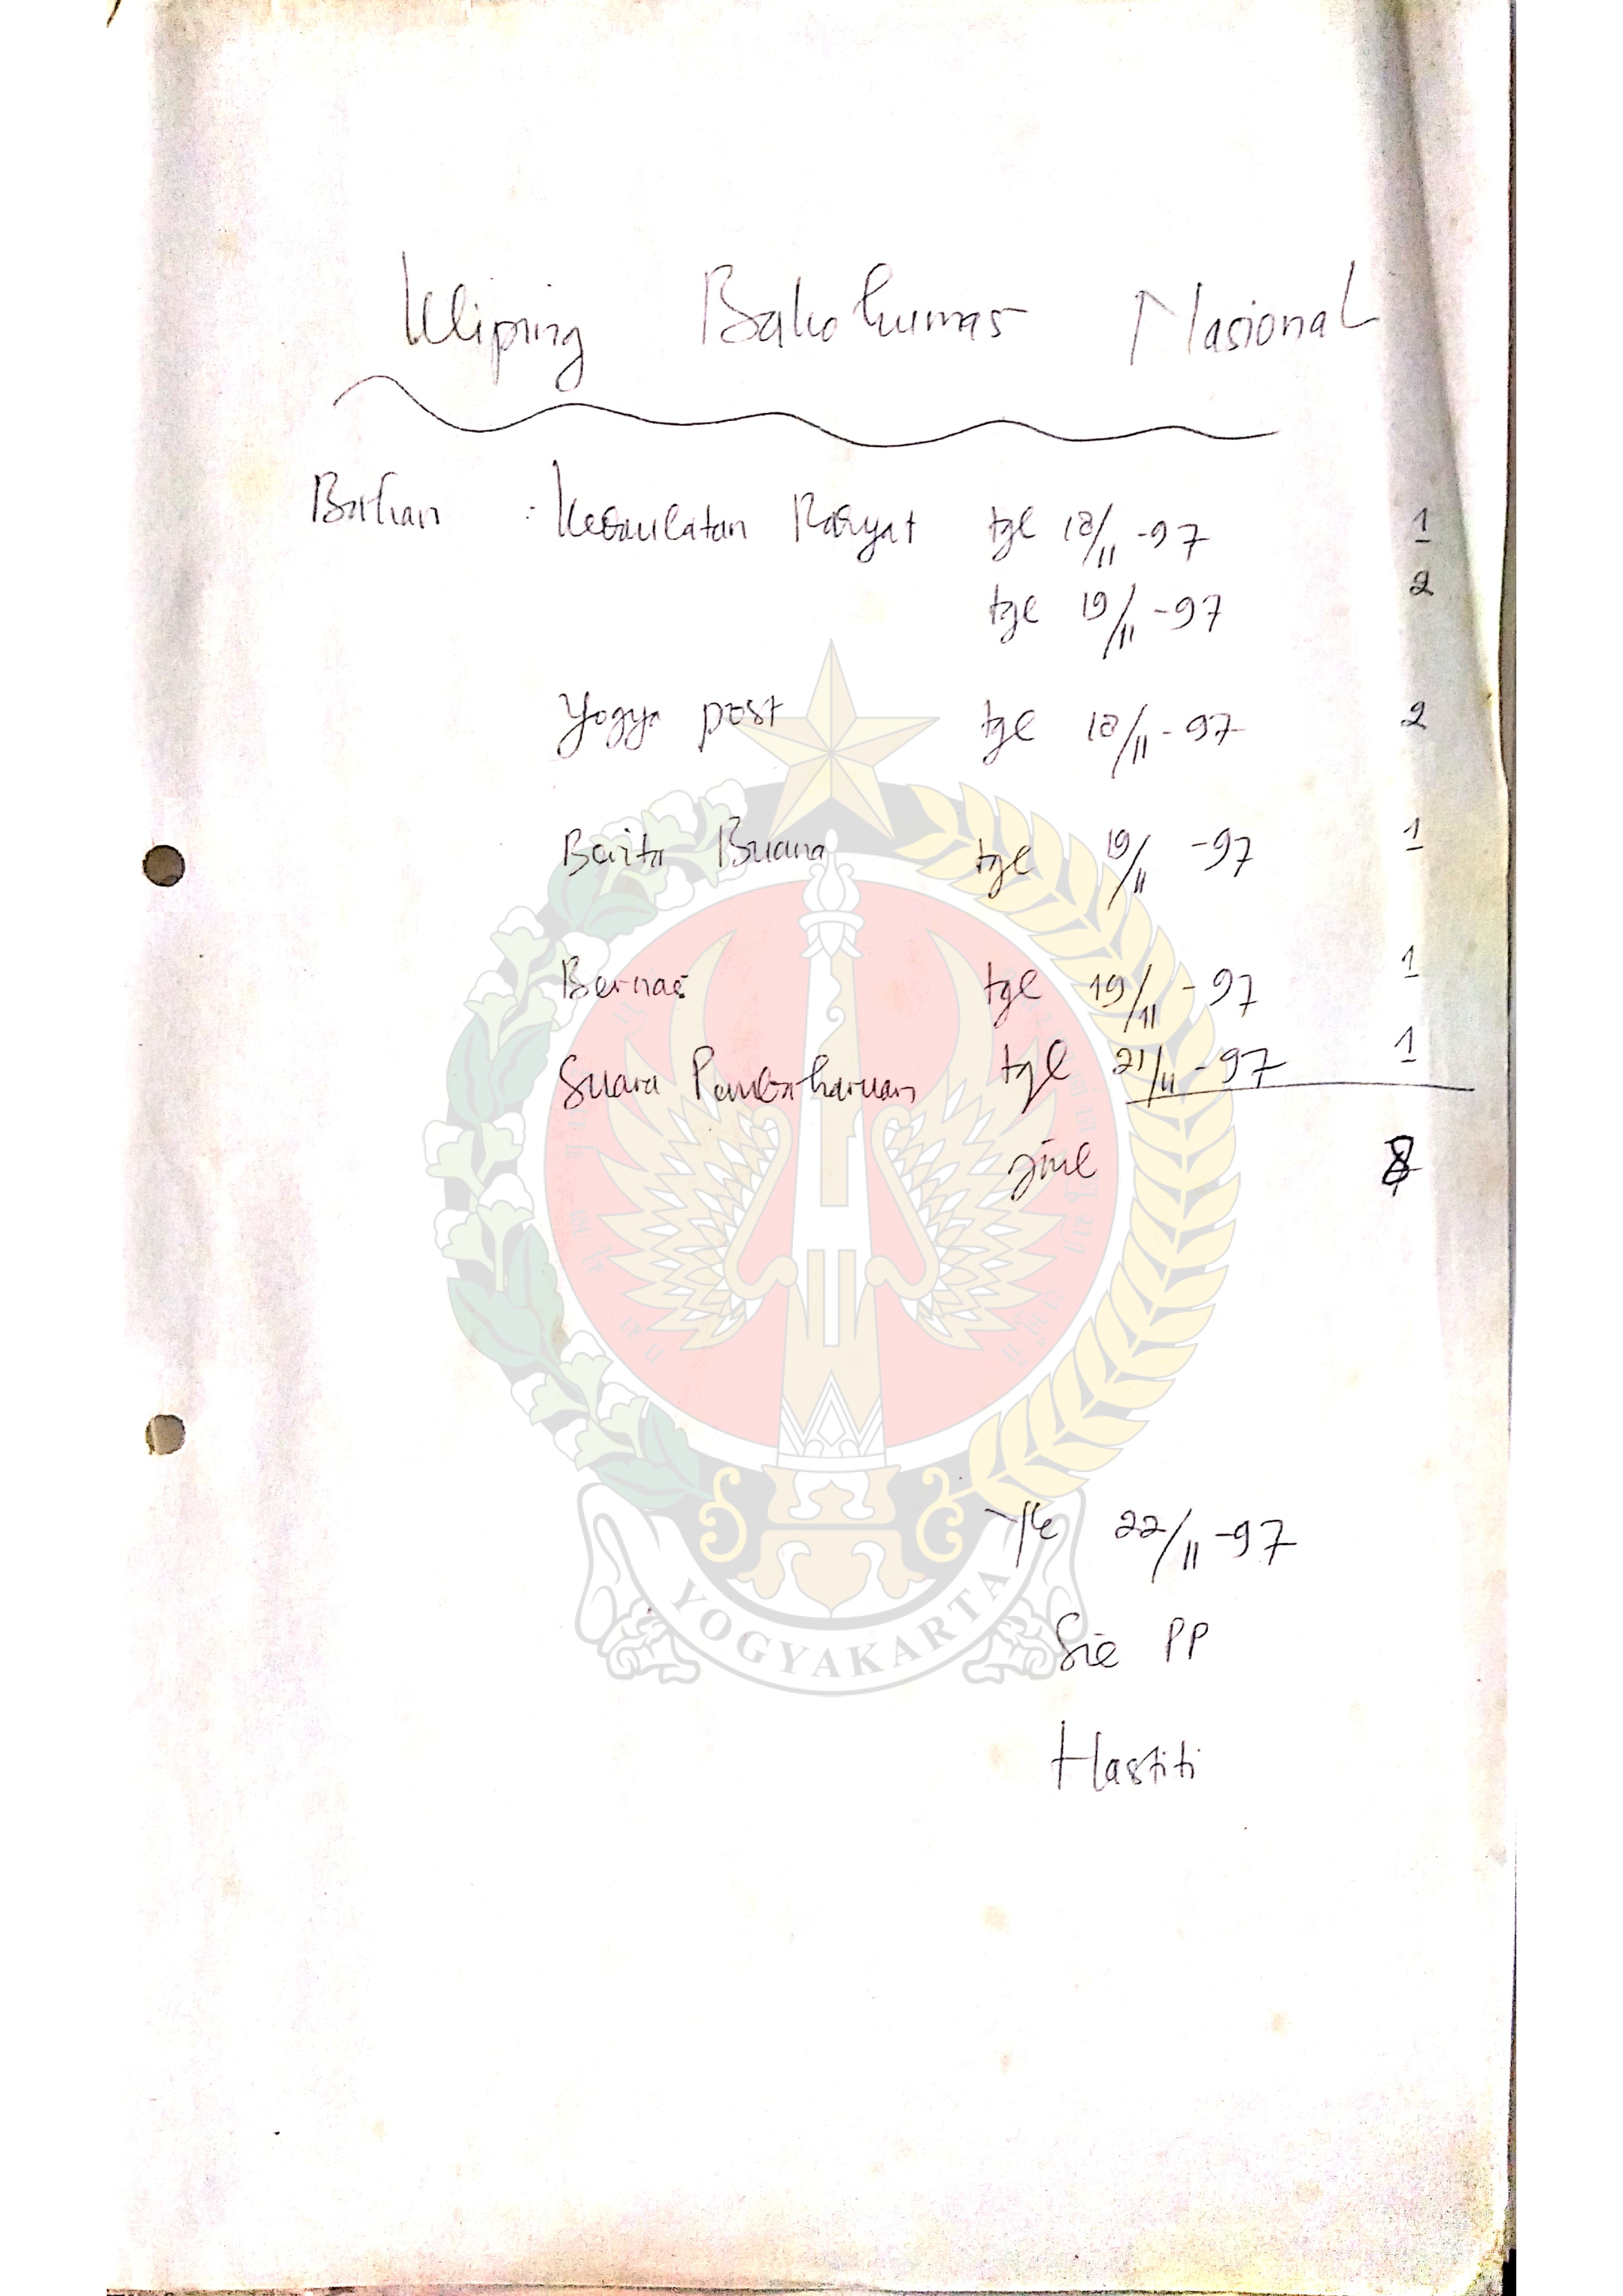 Kliping Bakohumas Nasional
Bahan : Kedaulatan Rakyat tgl 18/11-97 1
tgl 19/11-97 2
Yogya post tgl 18/11-97 2
Berita Buana tgl 19/11-97 1
Bernas tgl 19/11-97 1
Suara Pembaharuan tgl 21/11-97 1
jml 8
Yk 22/11-97
Sie PP
Hastiti
YOGYAKARTA